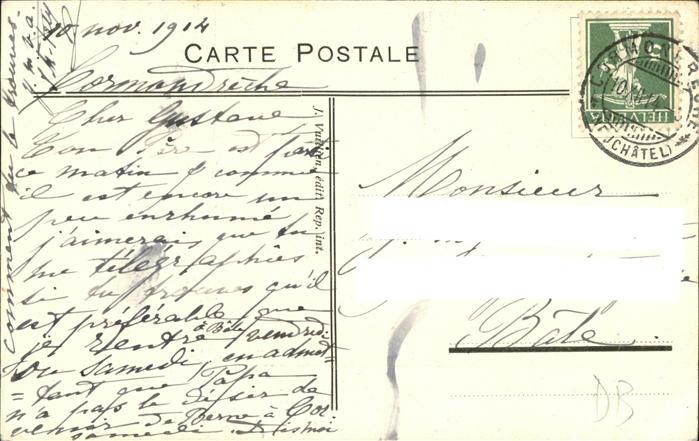 10 nov. 1914
CARTE POSTALE
Cormondrèche
Cher Gustave
Ton Père est parti
ce matin & comme
il est encore un
peu enrhumé
j'aimerais que tu
me télégraphies
si tu trouves qu'il
est préférable que
je rentre à Bâle vendredi
ou samedi en admet-
=tant que Papa
n'a pas le désir de
revenir de Berne à Cor.
samedi. Dis moi
comment tu le trouves.
J. Vuitteny, édit. Rep. int.
Monsieur
Bâle
HELVETIA
DB